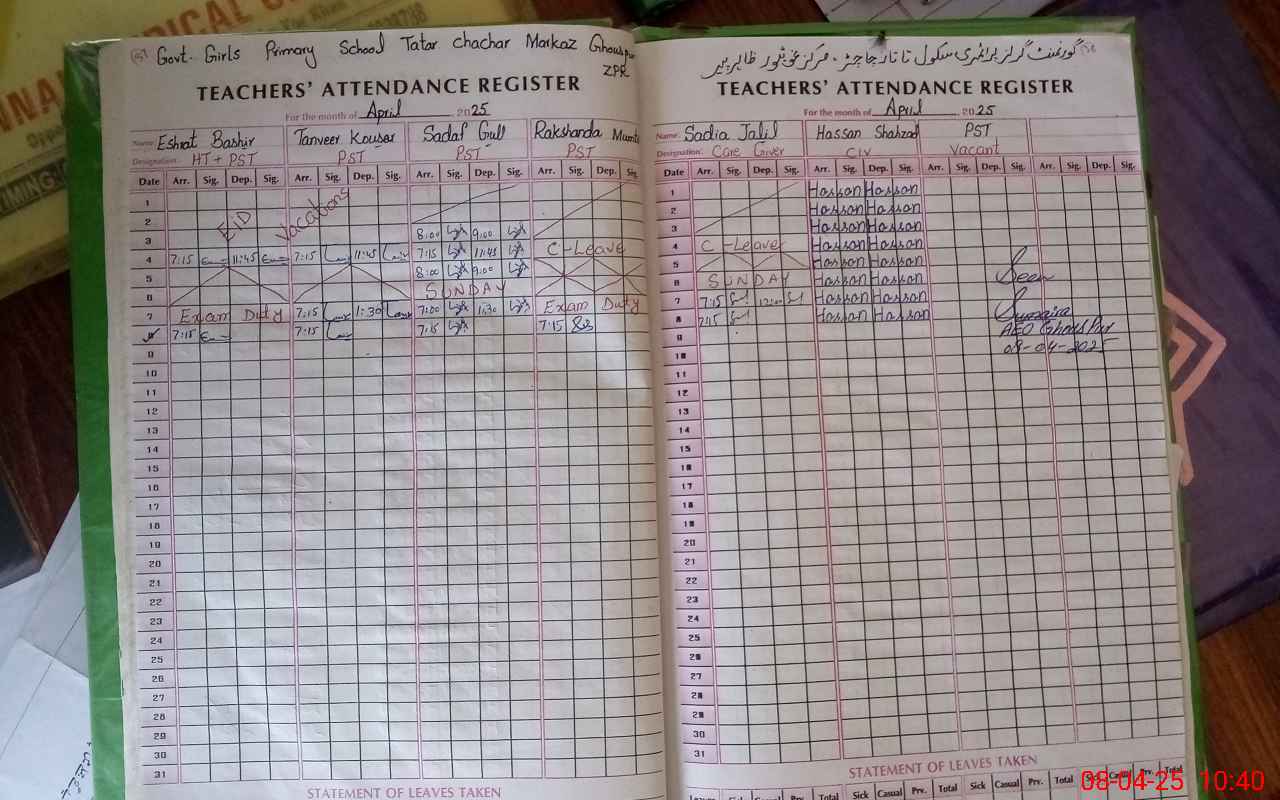 Govt. Girls Primary School Tatar chachar Markaz Ghouspur
ZPR
TEACHERS' ATTENDANCE REGISTER
For the month of April 2025
Name Eshrat Bashir Tanveer Kousar Sadaf Gull Rakshanda Mumta
Designation: HT + PST PST PST PST
Date Arr. Sig. Dep. Sig. Arr. Sig. Dep. Sig. Arr. Sig. Dep. Sig. Arr. Sig. Dep. Sig.
1
2 EiD Vacations
3 8:00 9:00
4 7:15 11:45 7:15 11:45 7:15 11:45 C-Leave
5 8:00 9:00
6 SUNDAY
7 Exam Duty 7:15 1:30 7:00 1:30 Exam Duty
7:15 7:15 7:15 7:15
9
10
11
12
13
14
15
16
17
18
19
20
21
22
23
24
25
26
27
28
29
30
31
STATEMENT OF LEAVES TAKEN
گورنمنٹ گرلز پرائمری سکول تاتار چاچڑ، مرکز غوثپور ظاہر پیر
TEACHERS' ATTENDANCE REGISTER
For the month of April 2025
Name: Sadia Jalil Hassan Shahzad PST
Designation: Care Giver CIV Vacant
Date Arr. Sig. Dep. Sig. Arr. Sig. Dep. Sig. Arr. Sig. Dep. Sig. Arr. Sig. Dep. Sig.
1 Hassan Hassan
2 Hassan Hassan
3 Hassan Hassan
4 C-Leave Hassan Hassan
5 Hassan Hassan
6 SUNDAY Hassan Hassan Seen
7 7:15 12:00 Hassan Hassan
8 7:15 Hassan Hassan Sumaira
9 AEO Ghous Pur
10 08-04-2025
11
12
13
14
15
16
17
18
19
20
21
22
23
24
25
26
27
28
29
30
31
STATEMENT OF LEAVES TAKEN
Leaves Sick Casual Prv. Total Sick Casual Prv. Total Sick Casual Prv. Total Sick Casual Prv. Total
08-04-25 10:40